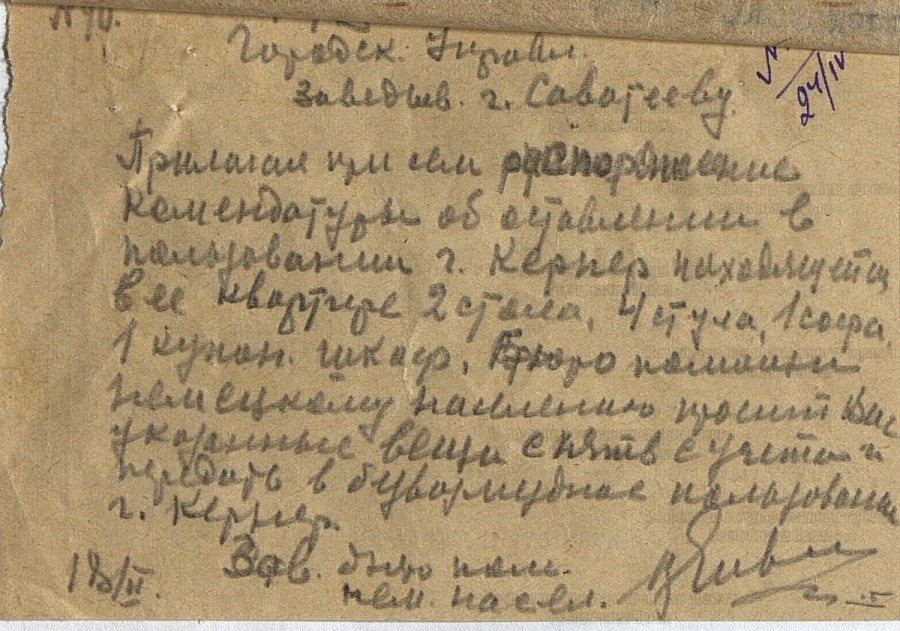 Городск. Управл.
24/IV
Заведыв. г. Саватееву
Прилагая при сем распоряжение
комендатуры об оставлении в
пользовании г. Кернер находящиеся
в ее квартире 2 стола, 4 стула, 1 софа,
1 кухон. шкаф, Бюро помощи
немецкому населению просит Вас
указанные вещи снять с учета и
передать в пользование
г. Кернер.
Зав. бюро пом.
18/II нем. насел.